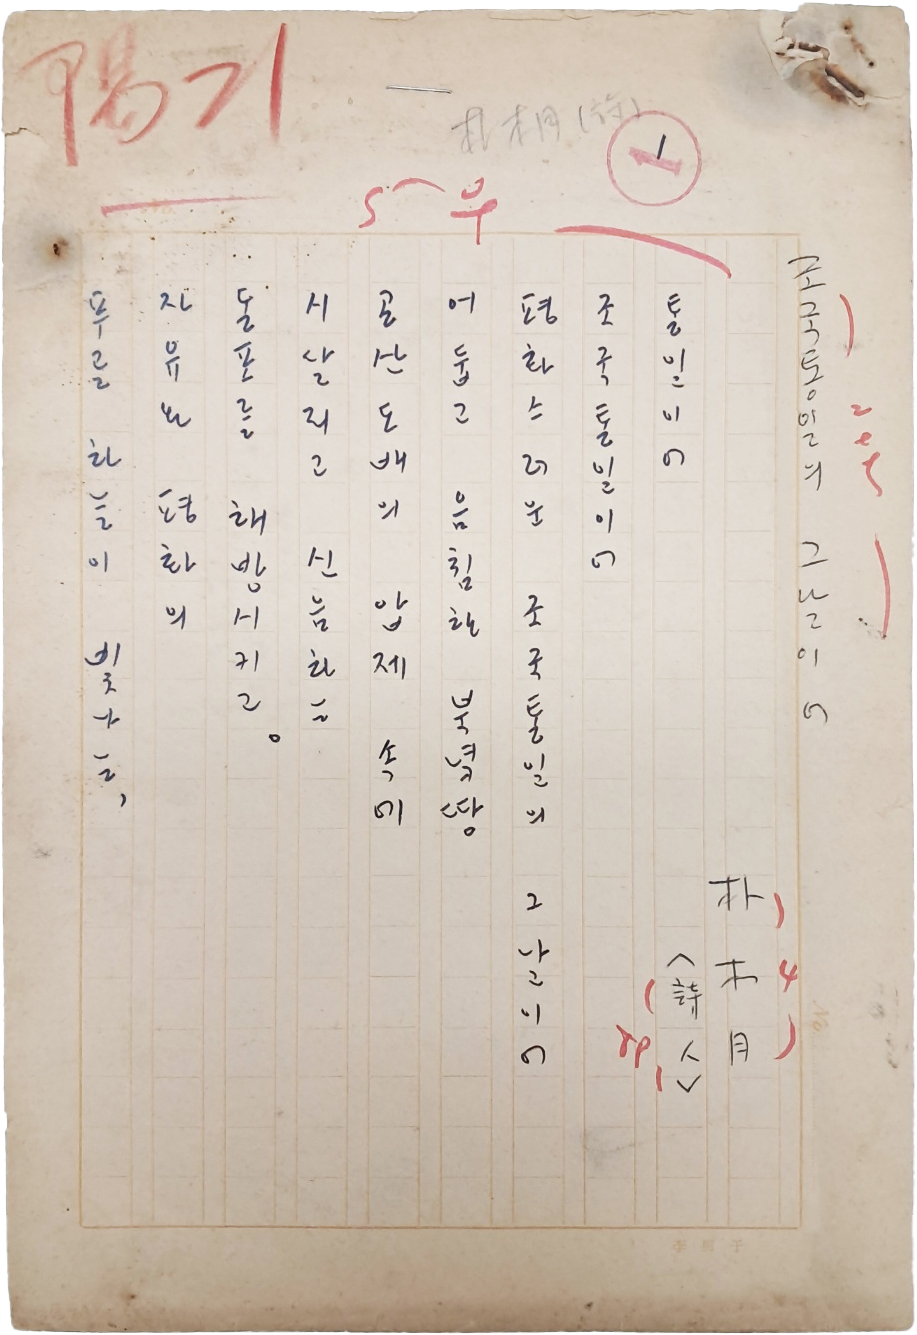 朴木月(詩)
1
조국통일의 그날이여
朴木月
<詩人>
통일이여
조국통일이여
평화스러운 조국통일의 그날이여
어둡고 음침한 북녘땅
공산도배의 압제 속에
시달리고 신음하는
동포를 해방시키고。
자유와 평화의
푸른 하늘이 빛나는,